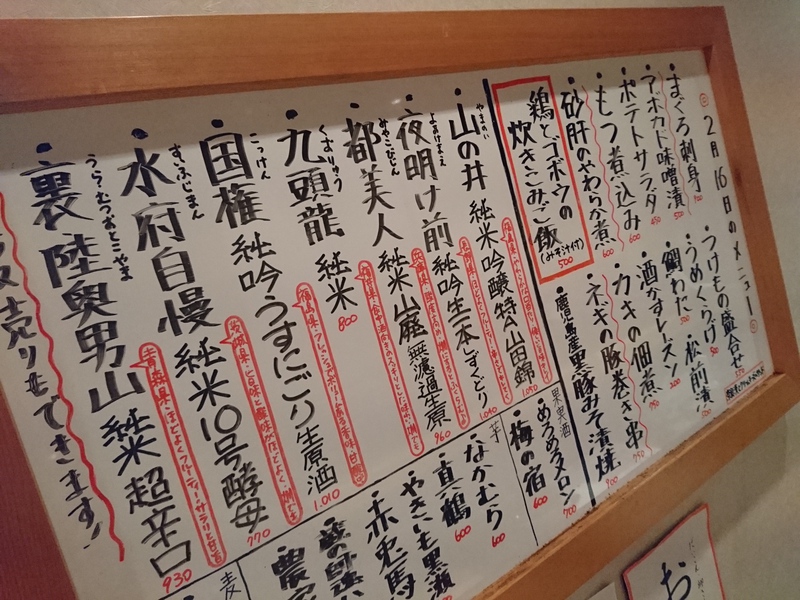 2月16日のメニュー
まぐろ刺身 700
アボカド味噌漬 450
ポテトサラダ
もつ煮込み 600
砂肝のやわらか煮 600
鶏とゴボウの
炊きこみご飯
(みそ汁付)
500
つけもの盛合せ
うめくらげ
松前漬 500
鯛わた 500
酒かすレーズン 300
カキの佃煮
ネギの豚巻き串
鹿児島産黒豚みそ漬焼 900
やまのい
山の井 純米吟醸特A山田錦 1,050
よあけまえ
夜明け前 純吟生一本しずくどり 1,040
みやこびじん
都美人 純米山廃無濾過生原 960
くずりゅう
九頭龍 純米 800
こっけん
国権 純吟うすにごり生原酒 1,010
すいふじまん
水府自慢 純米10号酵母 770
うら・むつおとこやま
裏陸奥男山 純米超辛口 930
売りもできます!
果実酒
めろめろメロン 700
梅の宿 600
芋
なかむら 600
真鶴 600
やきいも黒瀬
赤兎馬
麦
お